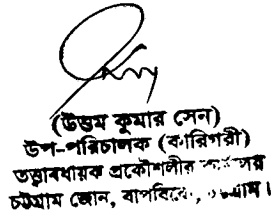 (উত্তম কুমার সেন)
উপ-পরিচালক (কারিগরী)
তত্ত্বাবধায়ক প্রকৌশলীর
চট্টগ্রাম জোন, বাপবিবো,